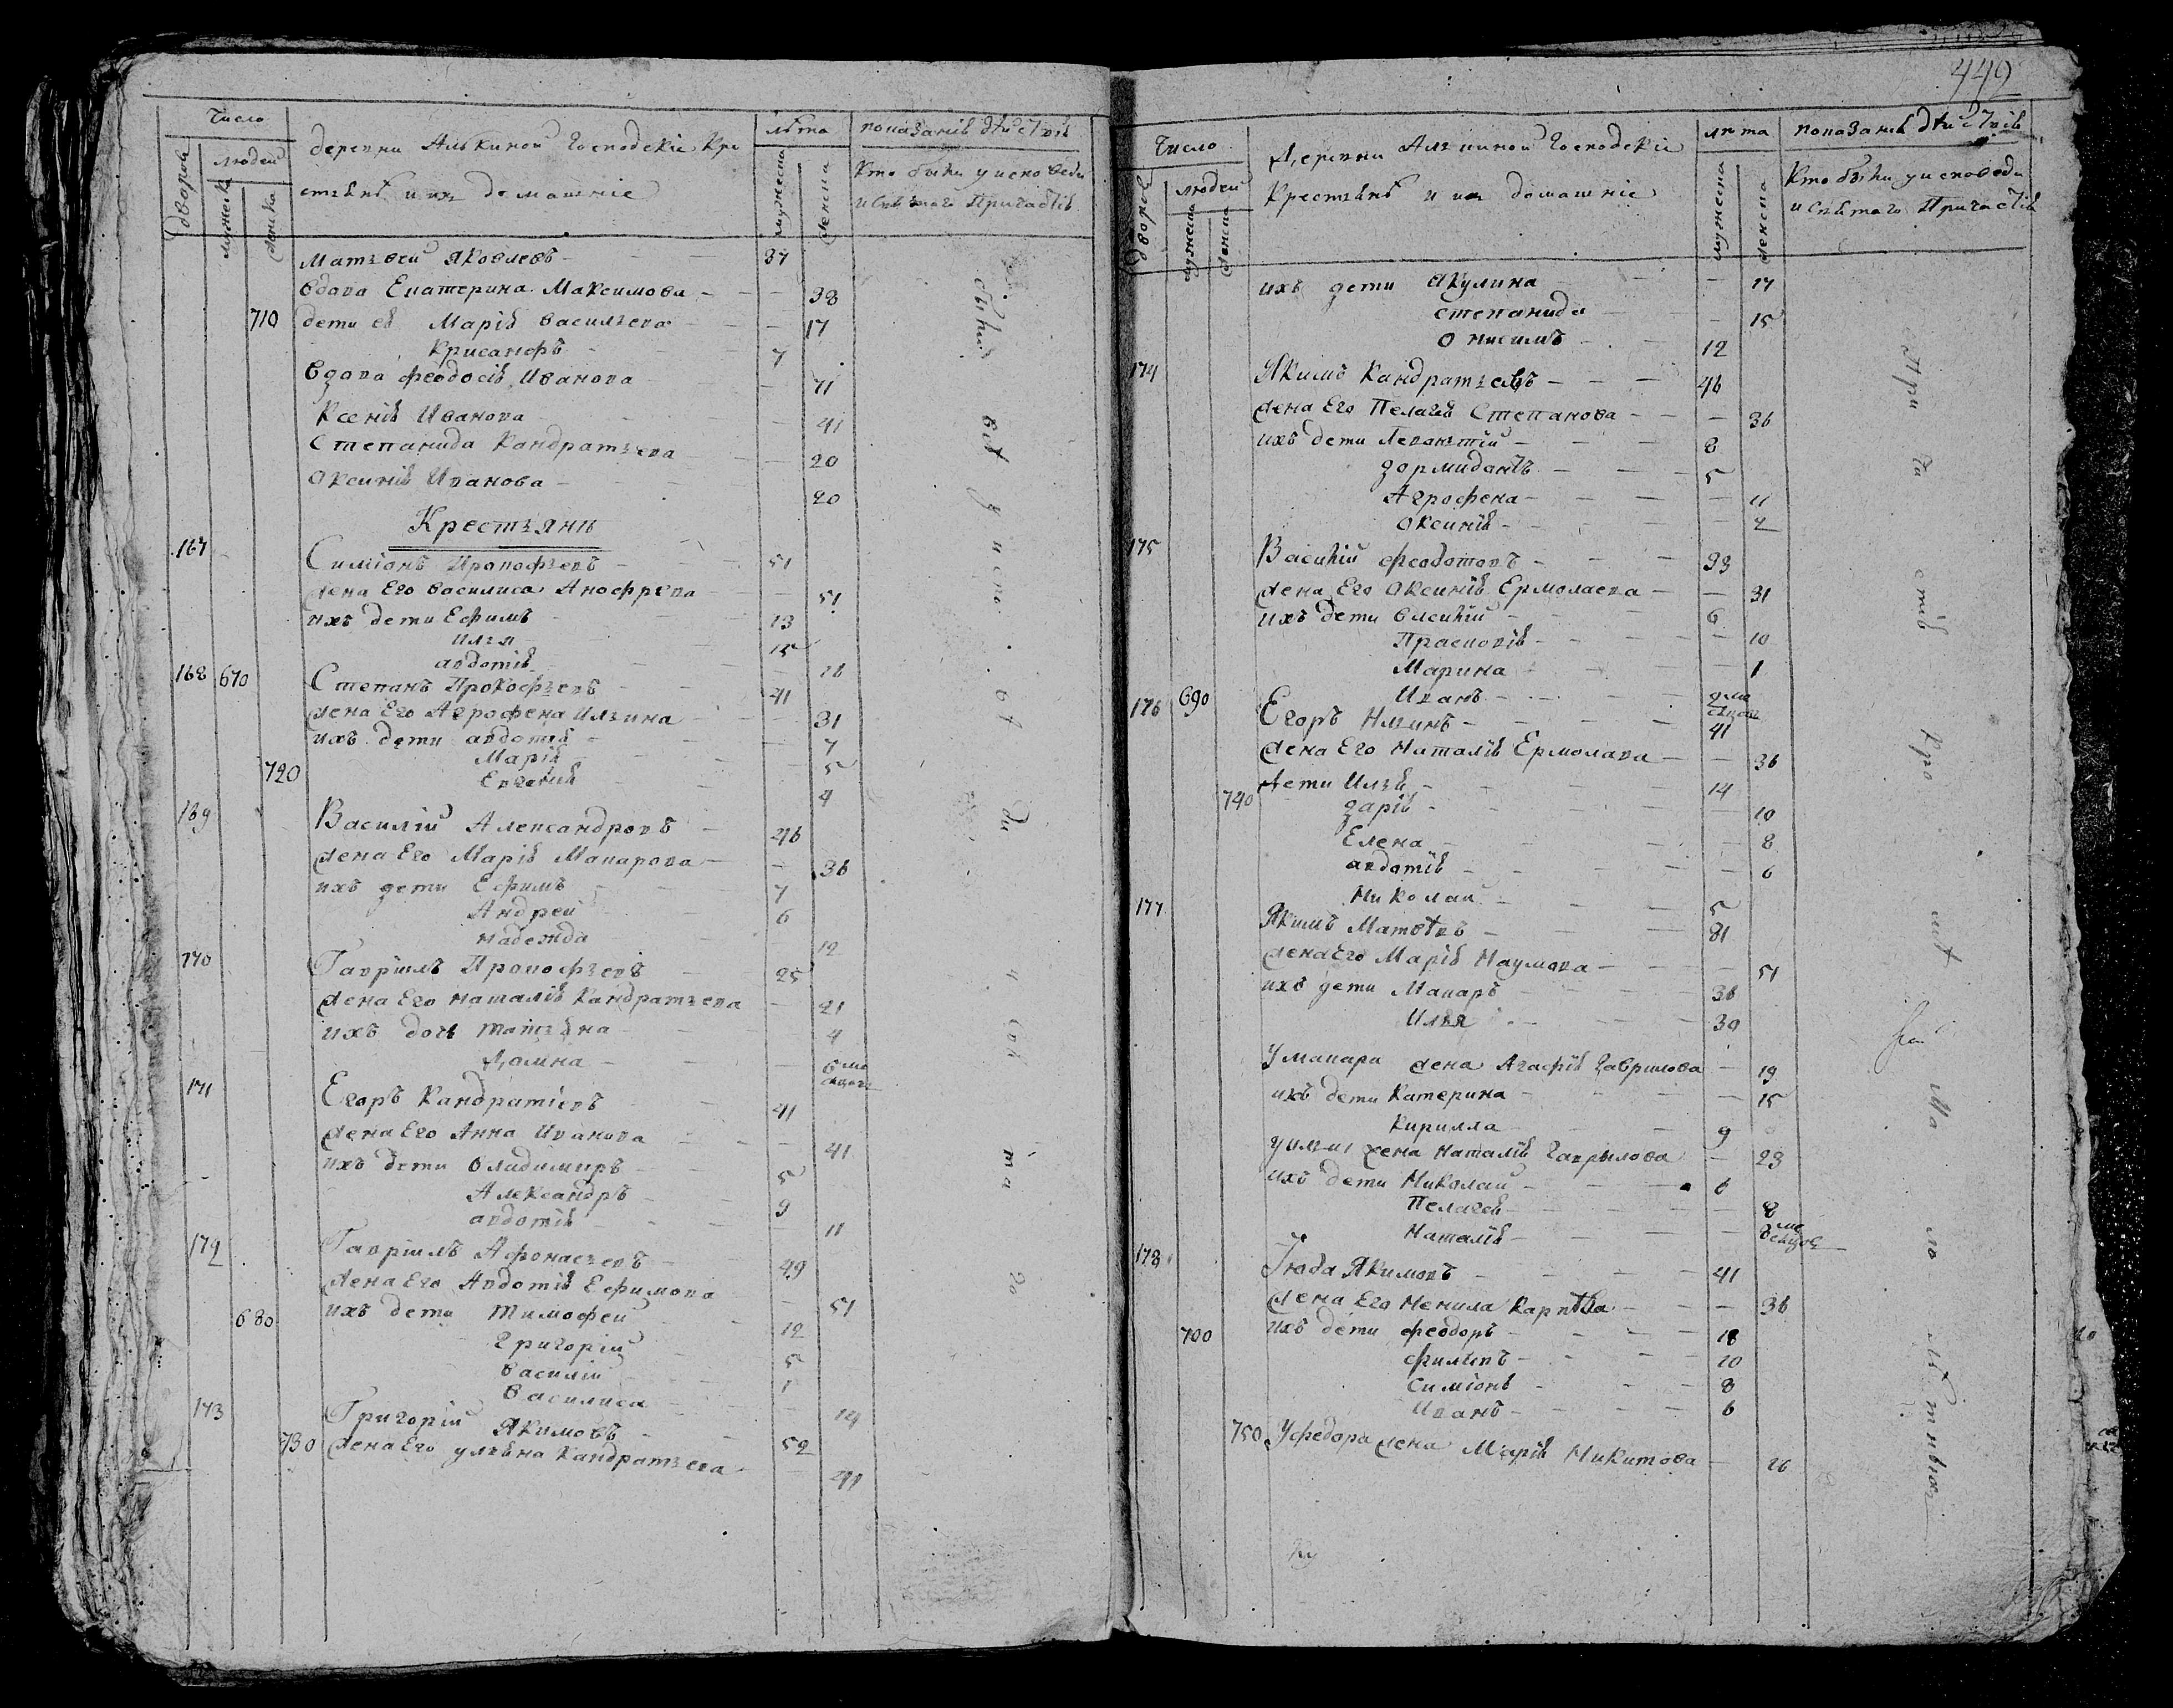 Число
дворовъ
людей
мужеска
женска
деревни Алькиной Господскіе Кре
стьянѣ и их домашніе
лѣта
мужеска
женска
показаніе дѣйствія
Кто были у исповеди
и святаго Причастія
Матьвей Яковлевъ 37
вдова Екатерина Максимова 38
710 дети еѣ Марія васильева 17
Крисанфъ 7
вдова феодосія Иванова 71
Ксенія Иванова 41
Степанида Кандратьева 20
Оксинія Иванова 20
Крестьяни
167 Симіонъ Прокофьевъ 51
жена Его василиса Анофрева 51
ихъ дети Ефимъ 13
илья 15
авдотія 18
168 670 Степанъ Прокофьевъ 41
жена Его Агрофена Ильина 31
ихъ дети авдотія 7
Марія 5
720 Евгенія 4
169 Василій Александровъ 46
жена Его Марія Макарова 36
ихъ дети Ефимъ 7
Андрей 6
надежда 12
170 Гавріилъ Прокофьевъ 25
жена Его наталія Кандратьева 21
ихъ дочь татьяна 4
Домна 6 ме
сяцовъ
171 Егоръ Кандратіевъ 41
жена Его Анна Иванова 41
ихъ дети владимиръ 5
Александръ 9
авдотія 11
172 Гавріилъ Афонасьевъ 49
жена Его Авдотія Ефимова 51
ихъ дети тимофей 12
680 Григорій 5
василій 1
василиса 14
173 Григорій Якимовъ 52
730 жена Его ульяна Кандратьева 41
были всѣ у испо
вѣ ди и свя та го
449
Число
дворовъ
людей
мужеска
женска
Деревни Алькиной Господскіе
Крестьянѣ и их домашніе
лѣта
мужеска
женска
показаніе дѣйствія
Кто были у исповеди
и святаго Причастія
ихъ дети Акулина 17
степанида 15
Онисимъ 12
174 Якимъ Кандратьевъ 46
жена Его Пелагея Степанова 36
ихъ дети Леонтій 8
дормидонтъ 5
Агрофена 11
Оксинія 2
175 Василій феодотовъ 33
жена Его Оксинія Ермолаева 31
ихъ дети Алексій 6
Прасковія 10
Марина 1
690 Иванъ
176 Егоръ Ильинъ 41
жена Его Наталія Ермолаева 36
дети Илья 14
740 дарія 10
Елена 8
авдотія 6
Николай 5
177 Якимъ Матвѣевъ 81
жена Его Марія Наумова 51
ихъ дети Макаръ 36
Илья 30
У макара жена Агафія Гаврилова 19
ихъ дети Катерина 15
Кирилла 9
у ильи жена Наталія Гаврилова 23
ихъ дети Николай 6
Пелагея 8
Наталія
178 Іюда Якимовъ 41
жена Его Ненила Карпова 36
700 ихъ дети феодоръ 18
филипъ 10
Симіонъ 8
Иванъ 6
750 У федора жена Марія Никитова 26
При ча стія Кро мѣ Ма ло лѣтныхъ